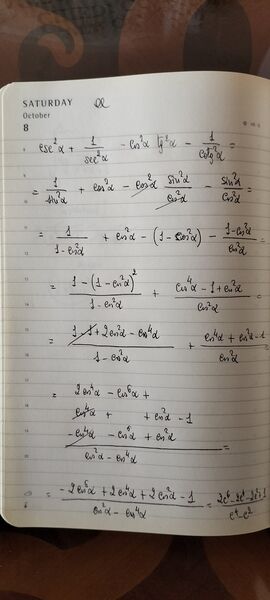 SATURDAY α
October
8
csc²α + 1/sec²α - cos²α tg²α - 1/cotg²α =
= 1/sin²α + cos²α - cos²α sin²α/cos²α - sin²α/cos²α =
= 1/(1-cos²α) + cos²α - (1-cos²α) - (1-cos²α)/cos²α =
= (1-(1-cos²α)²)/(1-cos²α) + (cos⁴α - 1 + cos²α)/cos²α =
= (1-1+2cos²α-cos⁴α)/(1-cos²α) + (cos⁴α + cos²α - 1)/cos²α
= 2cos⁴α - cos⁶α +
cos⁴α + + cos²α - 1
- cos⁴α - cos⁶α + cos²α =
cos²α - cos⁴α
= (-2cos⁶α + 2cos⁴α + 2cos²α - 1)/(cos²α - cos⁴α) = (2c⁶-2c⁴-2c²+1)/(c⁴-c²)